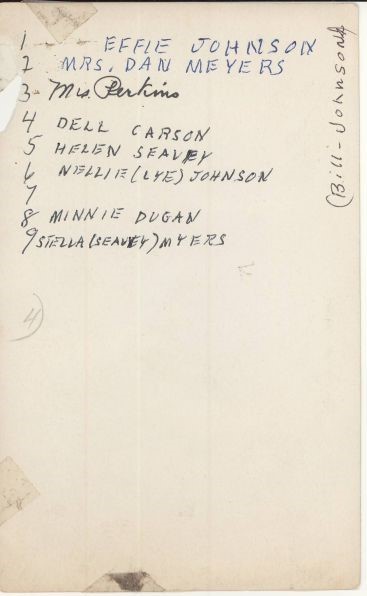 1 EFFIE JOHNSON
2 MRS. DAN MEYERS
3 Mrs. Perkins
4 DELL CARSON
5 HELEN SEAVEY
6 NELLIE (LYE) JOHNSON
7
8 MINNIE DUGAN
9 STELLA (SEAVEY) MYERS
4)
(Bill-Johnson)